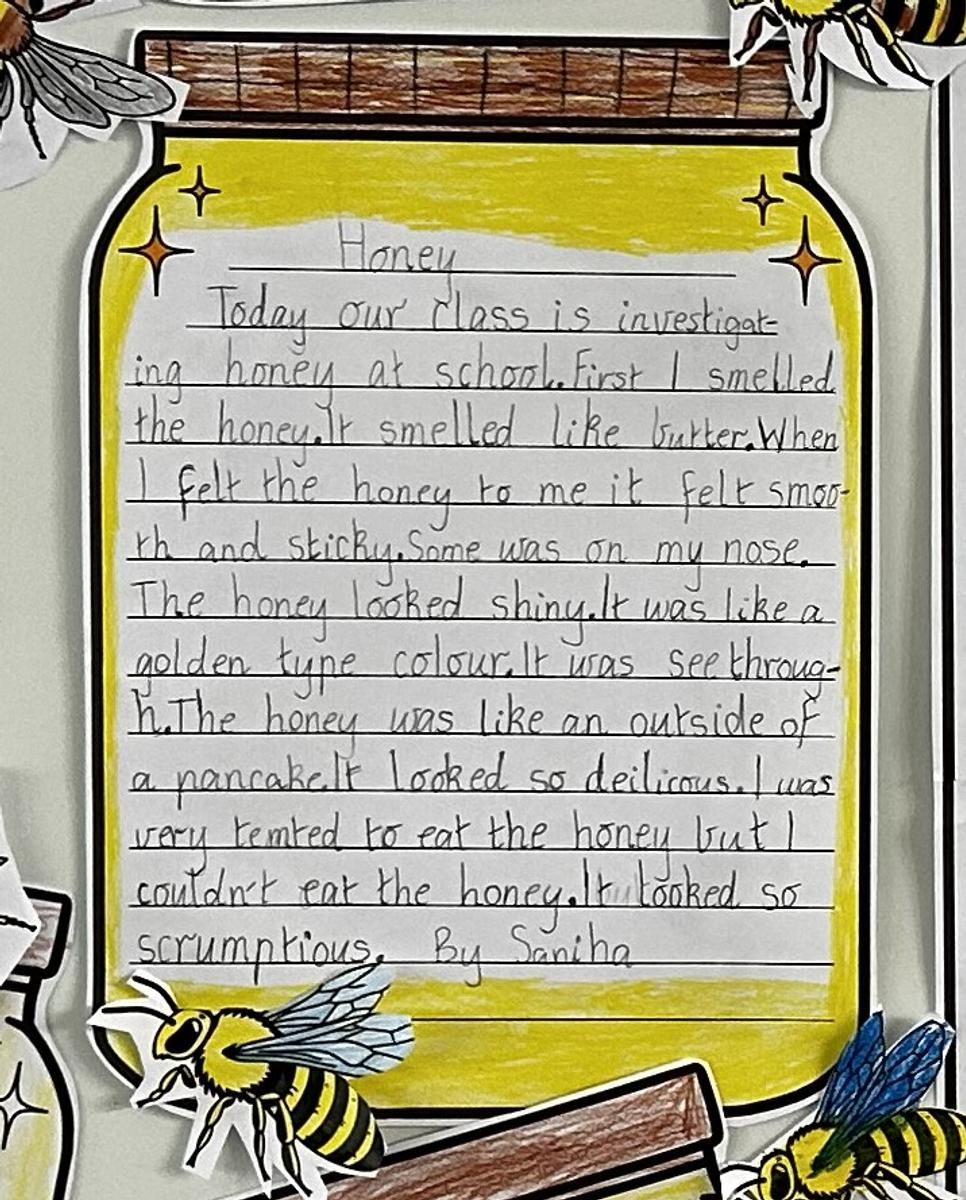 Honey
Today our class is investigat-
ing honey at school.First I smelled
the honey.It smelled like butter.When
I felt the honey to me it felt smoo-
th and sticky.Some was on my nose.
The honey looked shiny.It was like a
golden type colour.It was see throug-
h.The honey was like an outside of
a pancake.It looked so deilicous.I was
very temted to eat the honey but I
couldn't eat the honey.It looked so
scrumptious. By Saniha